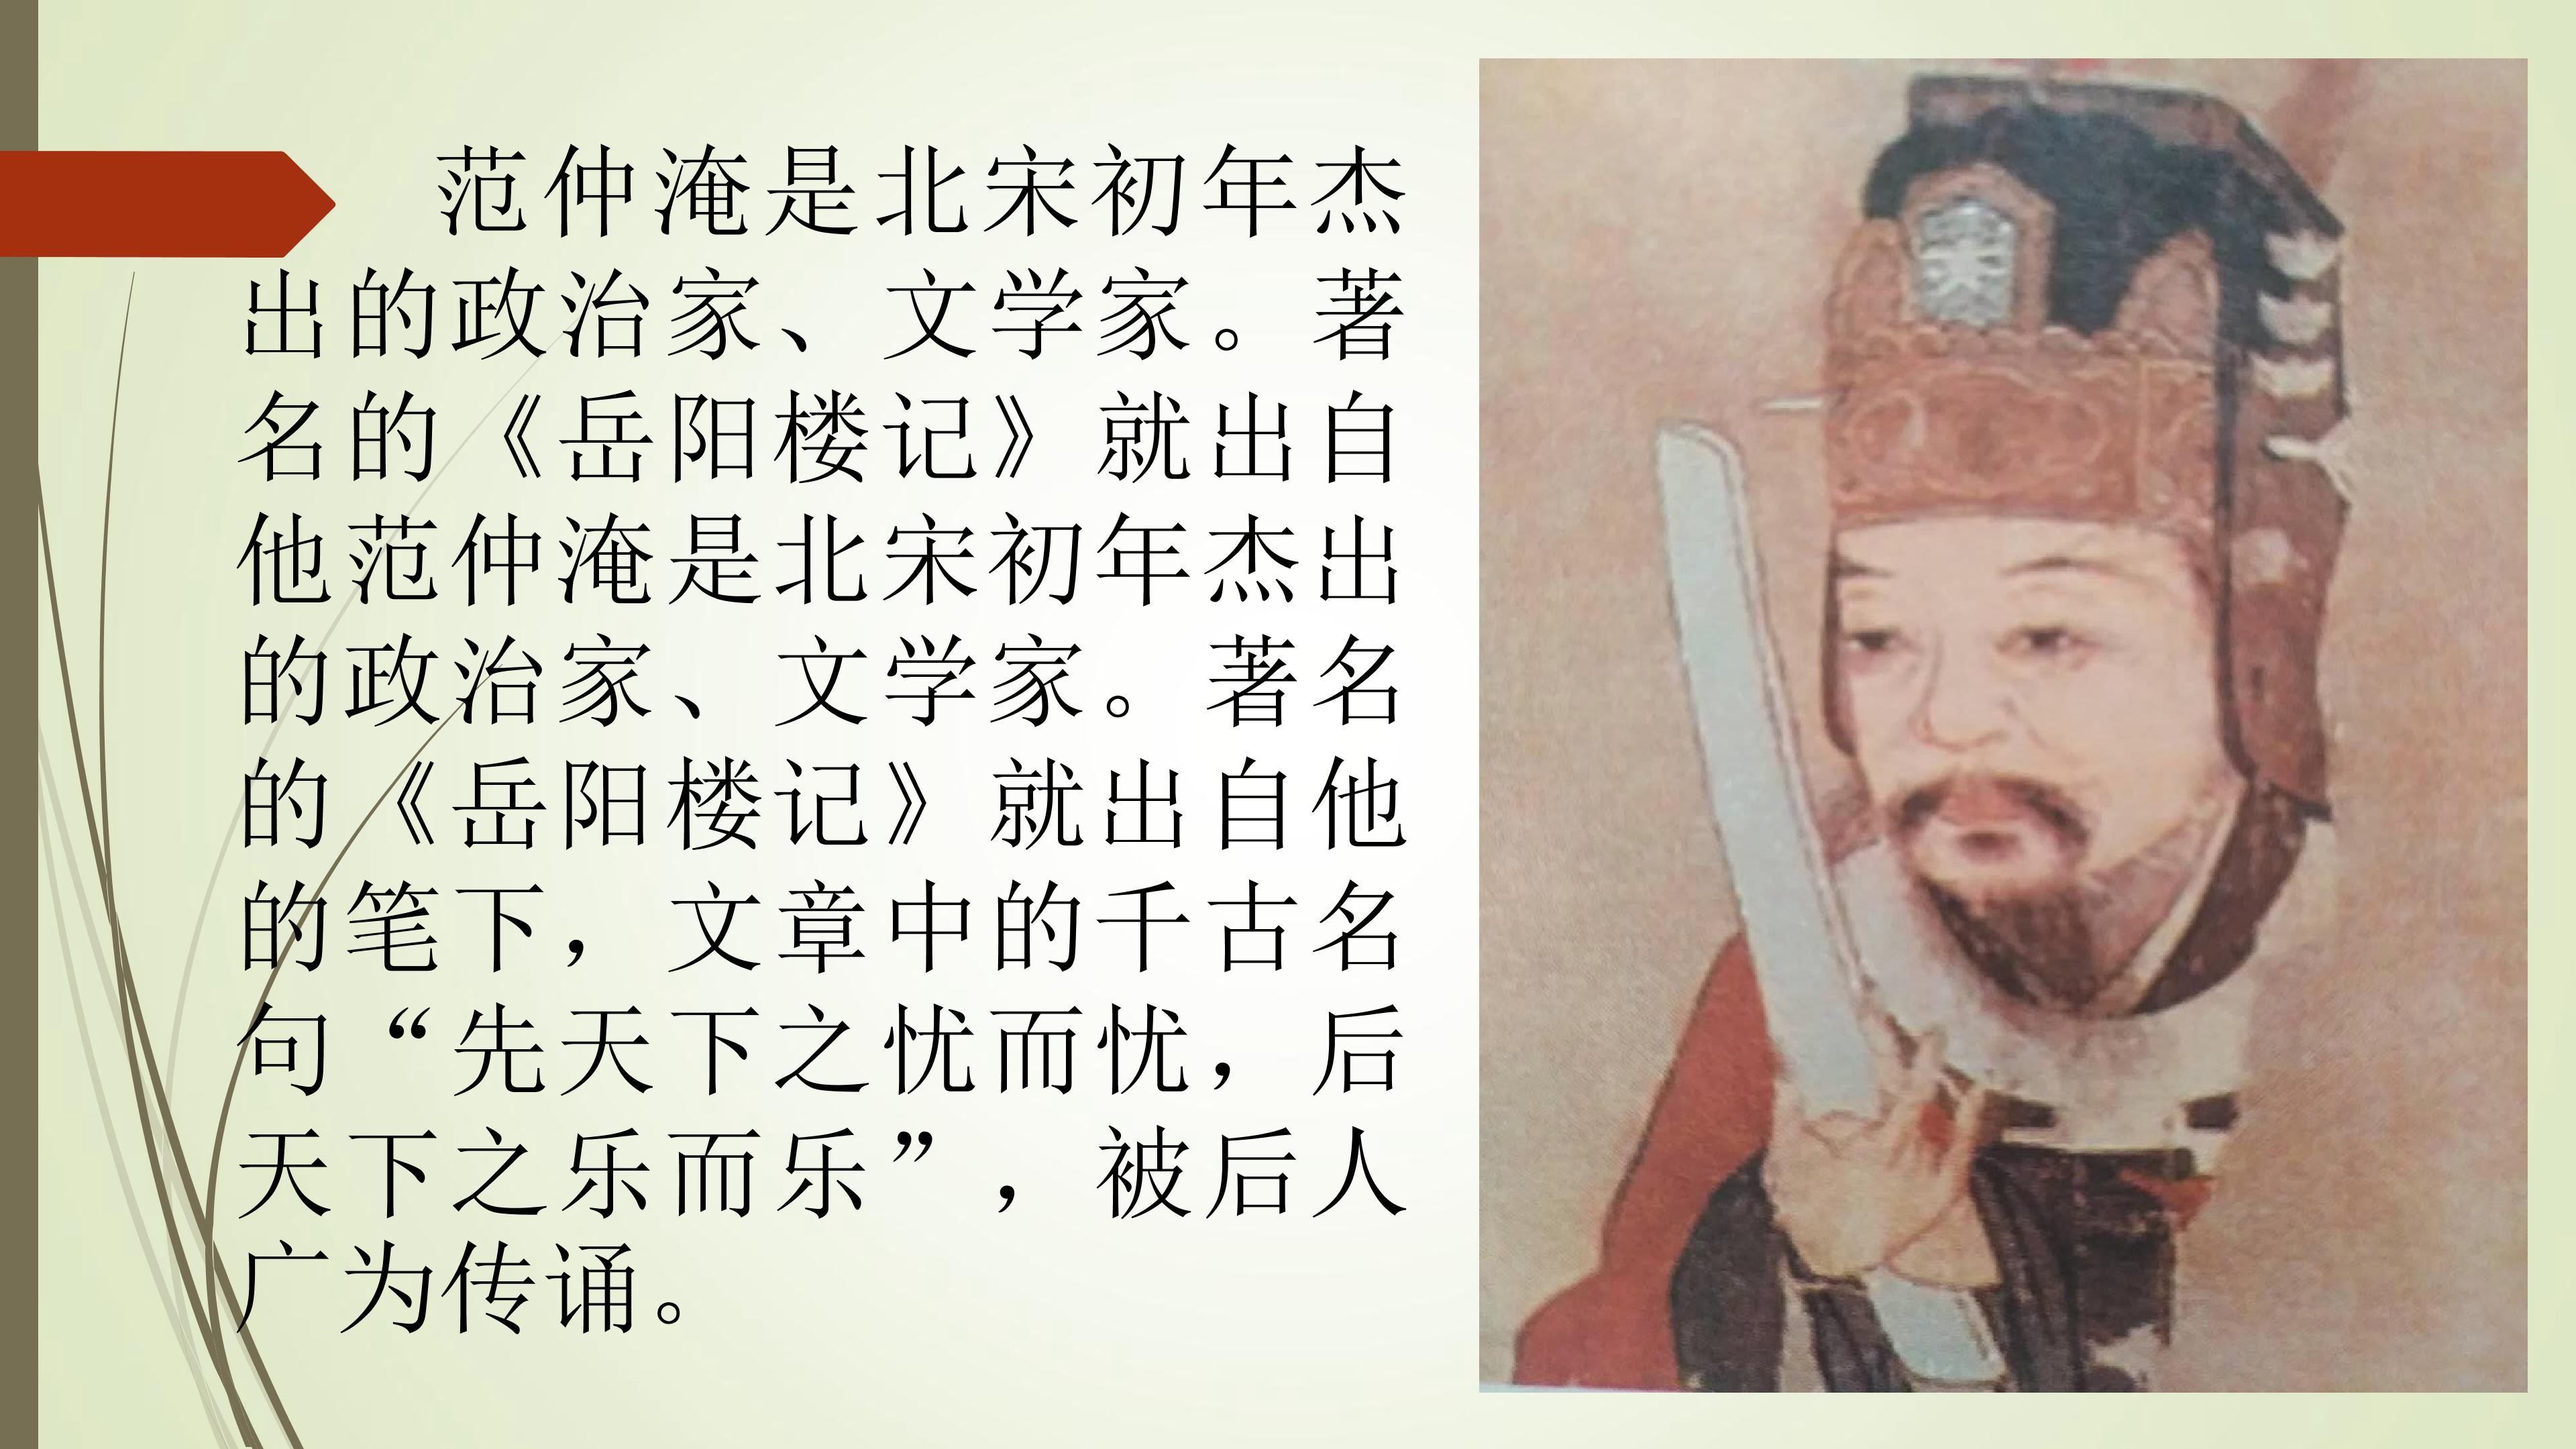 范仲淹是北宋初年杰
出的政治家、文学家。著
名的《岳阳楼记》就出自
他范仲淹是北宋初年杰出
的政治家、文学家。著名
的《岳阳楼记》就出自他
的笔下，文章中的千古名
句“先天下之忧而忧，后
天下之乐而乐”，被后人
广为传诵。